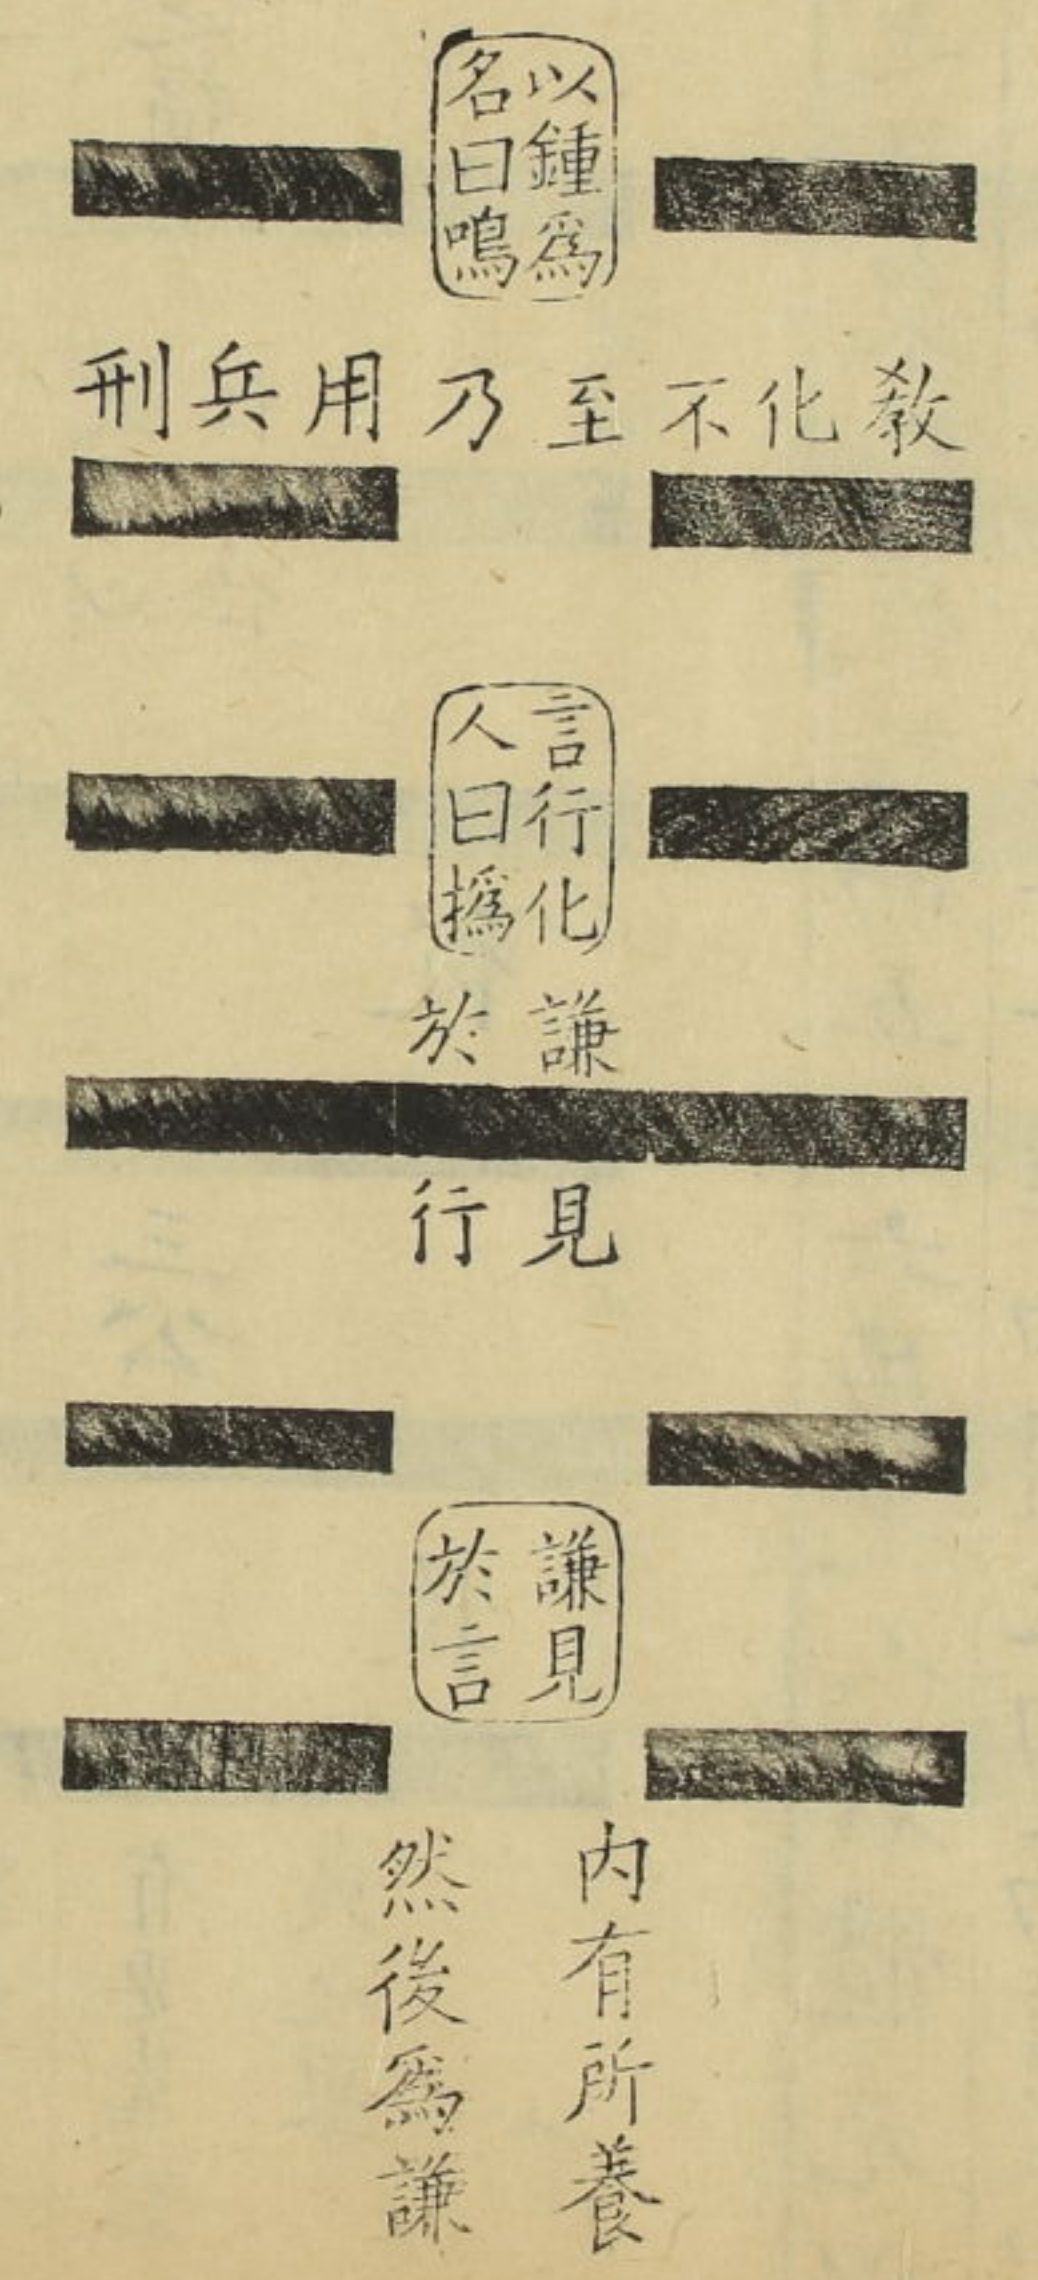 以鍾爲
名曰鳴
教化不至乃用兵刑
言行化
人曰撝
謙於
見行
謙見
於言
内有所養
然後爲謙